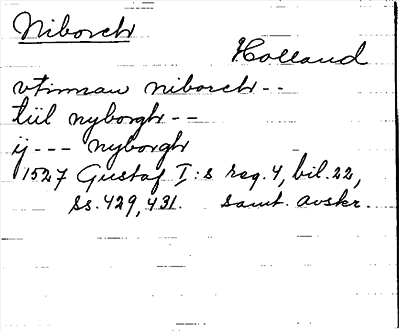 Niborch
Holland
vtinnan niborch --
tiil nyborgh --
ij --- nyborgh
1527 Gustaf I:s reg. 4, bil. 22,
ss. 429, 431. samt. avskr.